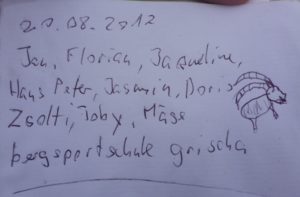 20.08.2012
Jan, Florian, Jaqueline,
Hans Peter, Jasmin, Doris
Zsolti, Toby, Mäse
bergsportschule grischa